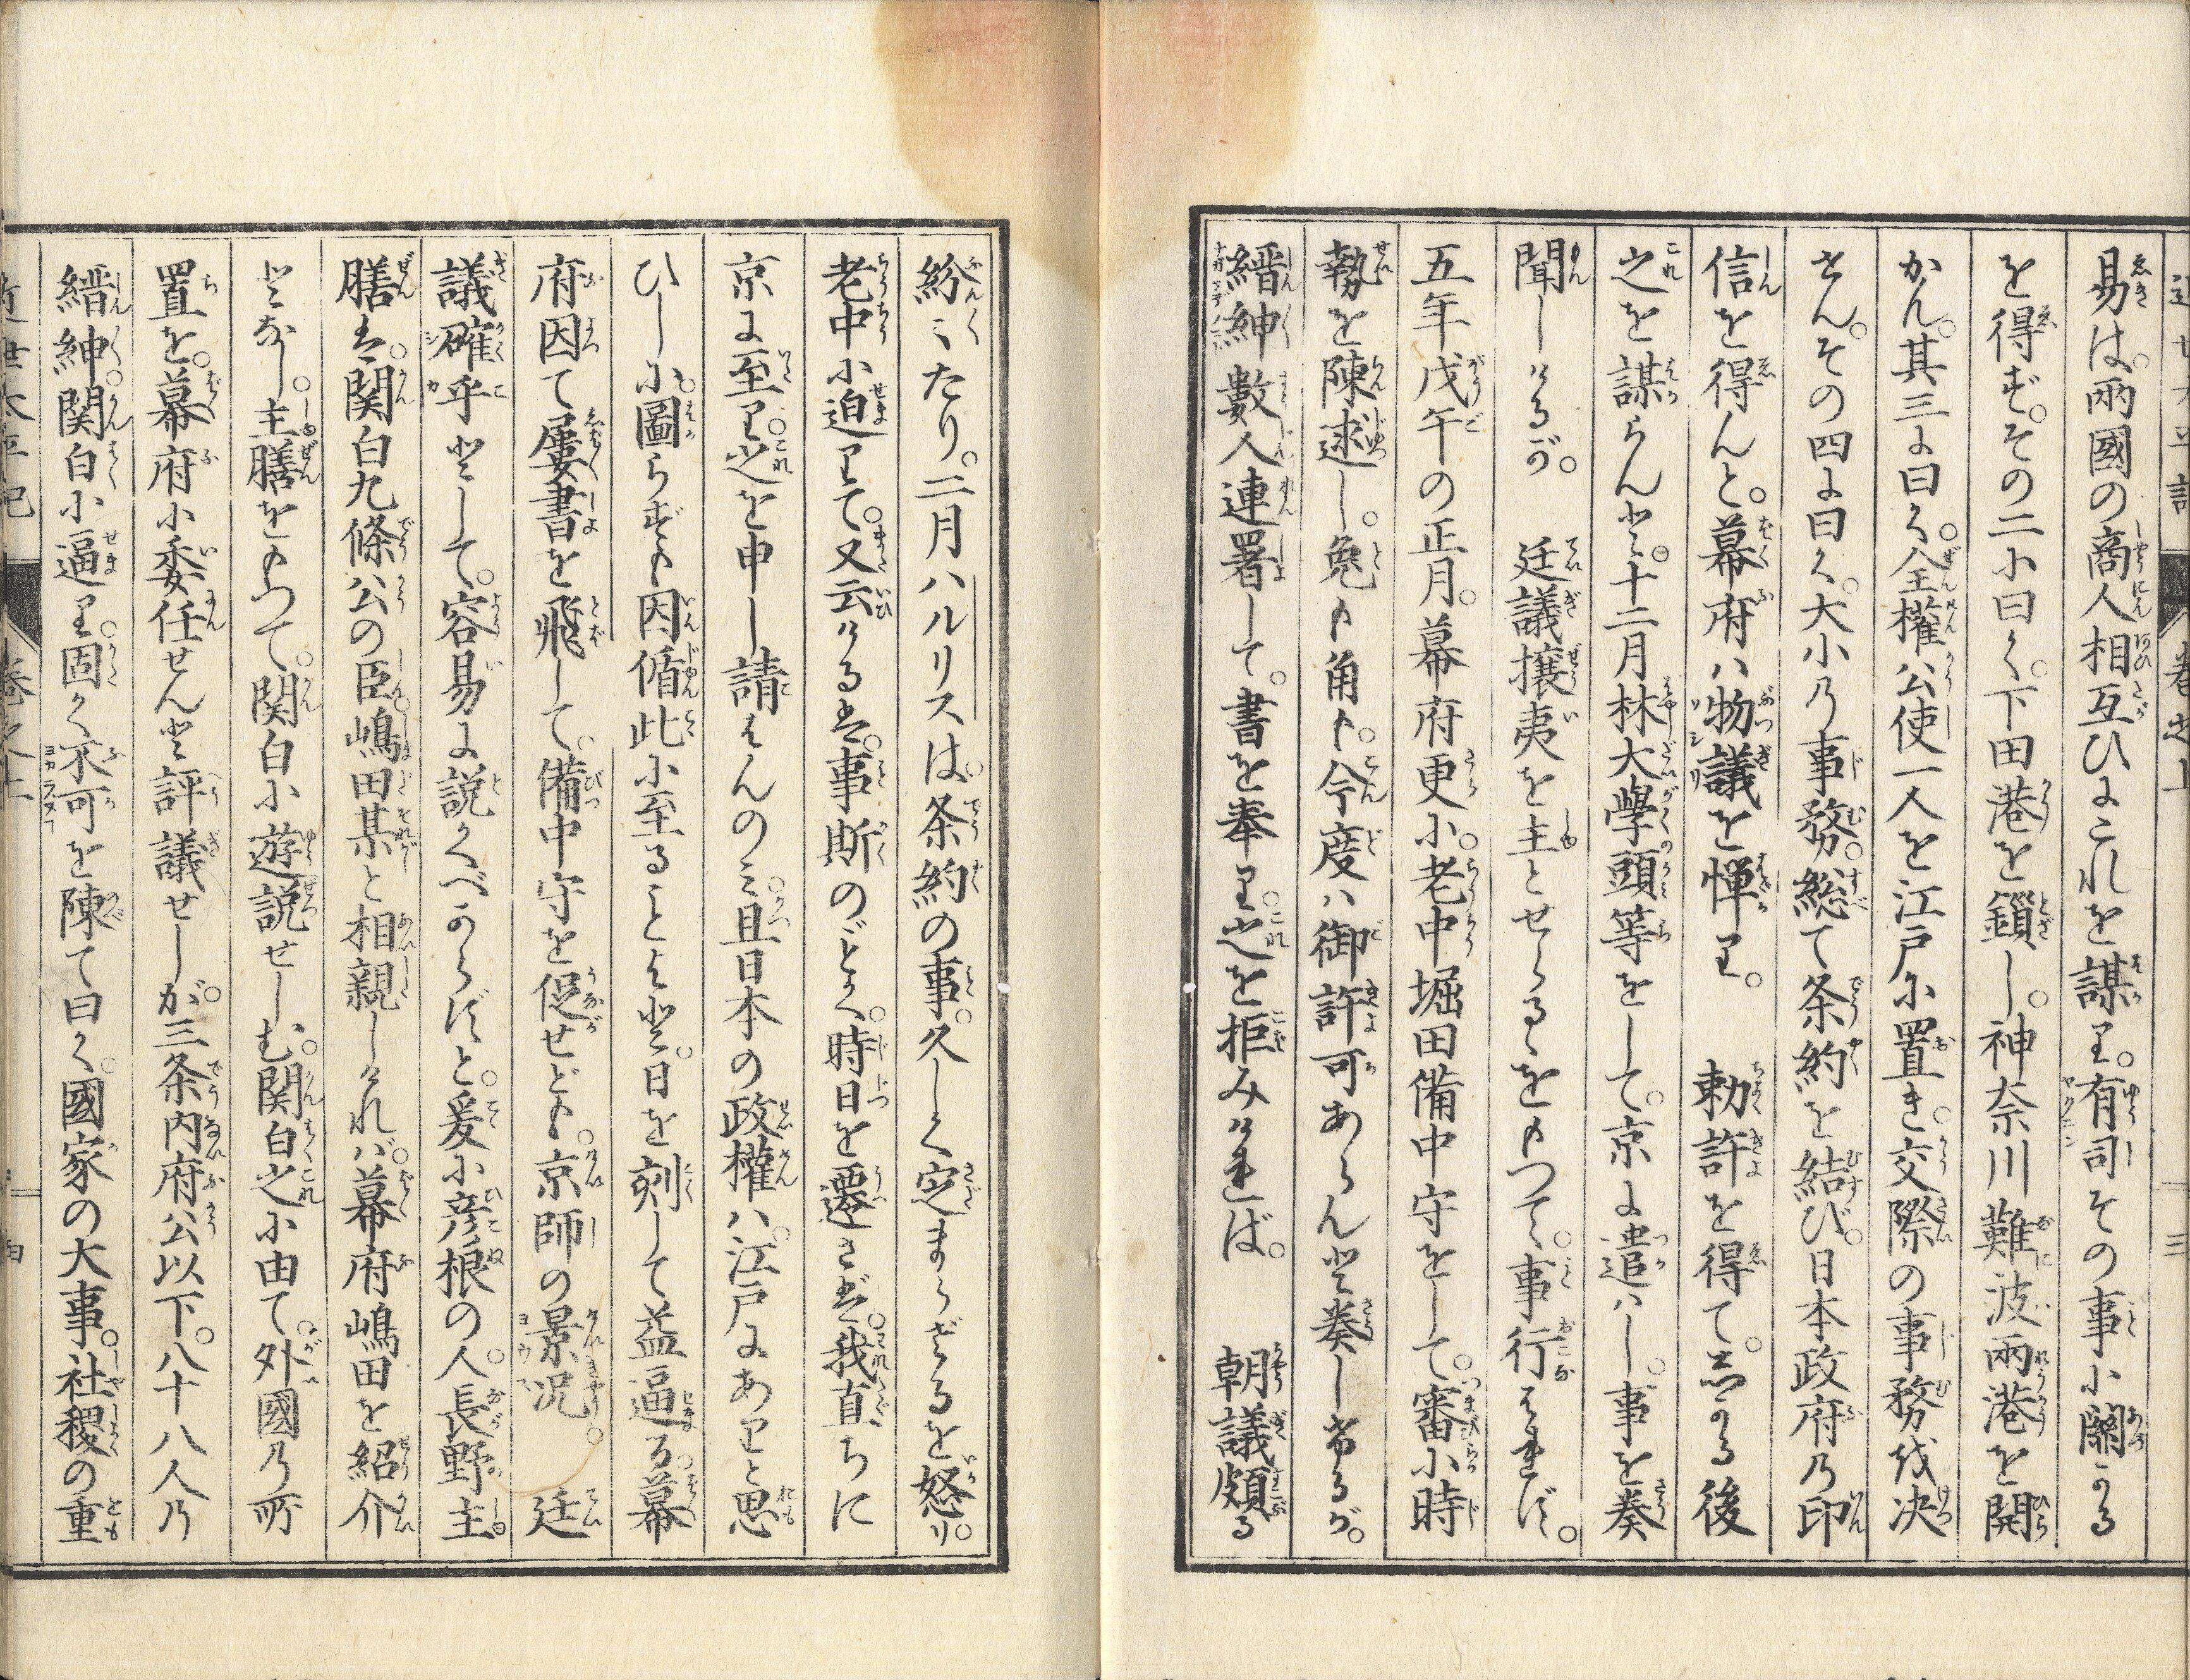 易は。兩國の商人相互ひにこれを謀り。有司その事に關かる
を得ず。その二に曰く。下田港を鎖し。神奈川難波兩港を開
かん。其三に曰く。全權公使一人を江戸に置き。交際の事務を决
せん。その四に曰く。大小の事務。総て条約を結び。日本政府の印
信を得んと。幕府ハ物議を憚り。勅許を得て。志かる後
之を謀らんと。十二月林大學頭等をして。京に遣ハし。事を奏
聞しけるが。廷議攘夷を主とせらるゝをもつて。事行はれず。
五年戊午の正月。幕府更に。老中堀田備中守をして。審に時
勢を陳述し。兔も角も。今度ハ御許可あらんと奏し希るが。
縉紳數人連署して。書を奉り。之を拒みければ。朝議頗る
紛〻たり。二月ハルリスは条約の事。久しく定まらざるを怒り。
老中に迫りて。又云けるは。事斯のごとく。時日を遷さば。我直ちに
京に至り。之を申し請はんのミ。且日本の政權ハ。江戸にありと思
ひしに。圖らずも因循此に至ることはと。日を刻して益逼る。幕
府因て屢書を飛して。備中守を促せども。京師の景况。廷
議確乎として。容易に説くべからずと。爰に彦根の人。長野主
膳は。関白九條公の臣。嶋田某と相親しければ。幕府嶋田を紹介
となし。主膳をもつて。関白に遊説せしむ。関白之に由て。外國の所
置を。幕府に委任せんと評議せしが。三条内府公以下。八十八人の
縉紳。関白に逼り。固く不可を陳て曰く。國家の大事。社稷の重